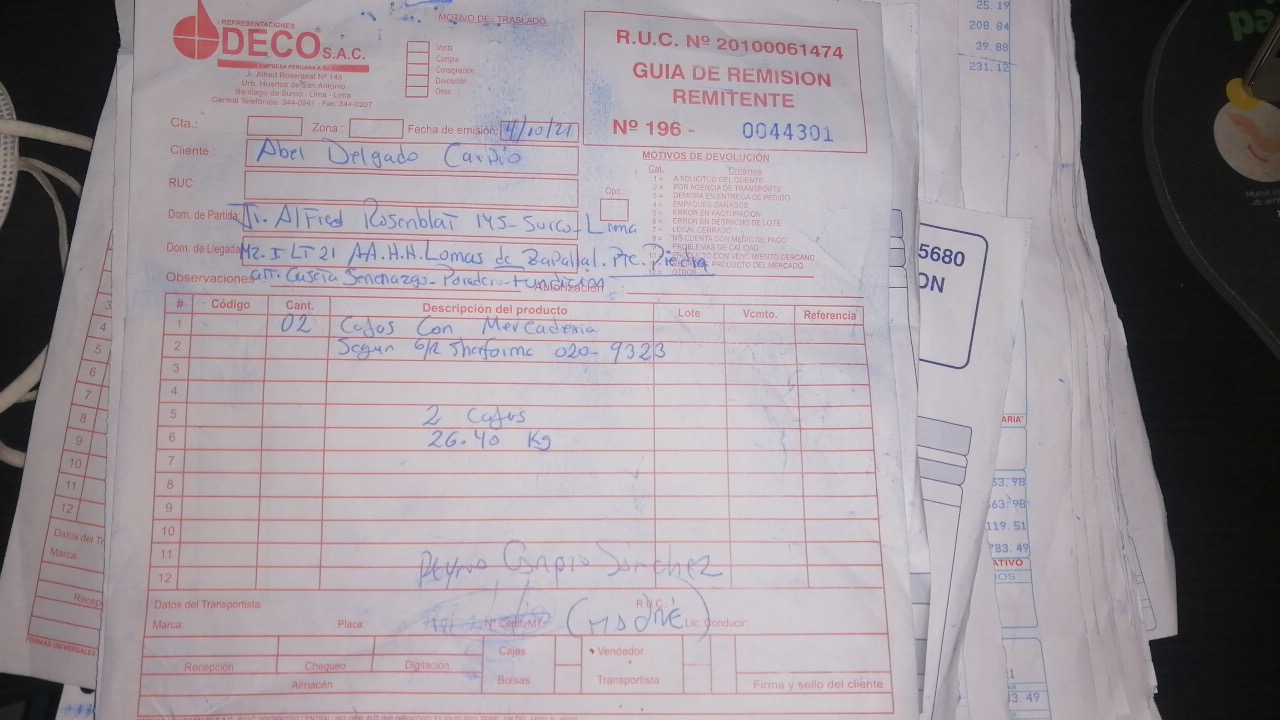 REPRESENTACIONES
DECO S.A.C.
Jr. Alfred Rosenblat Nº 145
Urb. Huertos de San Antonio
Santiago de Surco - Lima - Lima
Central Telefónica: 344-0241 - Fax: 344-0207
MOTIVO DEL TRASLADO
Venta
Compra
Consignación
Devolución
Otros
R.U.C. Nº 20100061474
GUIA DE REMISION
REMITENTE
Nº 196 - 0044301
Cta.: Zona : Fecha de emisión: 4/10/21
Cliente : Abel Delgado Carpio
RUC:
Dom. de Partida: Jr. Alfred Rosenblat 145-Surco-Lima
Dom. de Llegada: Mz. I LT 21 AA.H.H. Lomas de Zapallal. Pte. Piedra
Observaciones
Autorización
MOTIVOS DE DEVOLUCIÓN
Cal. Criterios
1 = A SOLICITUD DEL CLIENTE
2 = POR AGENCIA DE TRANSPORTE
3 = DEMORA EN ENTREGA DE PEDIDO
4 = EMPAQUES DAÑADOS
5 = ERROR EN FACTURACION
6 = ERROR EN DESPACHO DE LOTE
7 = LOCAL CERRADO
8 = NO CUENTA CON MEDIO DE PAGO
PROBLEMAS DE CALIDAD
PRODUCTO CON VENCIMIENTO CERCANO
PRODUCTO DEL MERCADO
Opt.:
# Código Cant. Descripción del producto Lote Vcmto. Referencia
1 02 Cajas Con Mercaderia
2 Segun G/R 020-9323
3
4
5 2 Cajas
6 26.40 Kg
7
8
9
10
11
12
Carpio Sanchez
(MADRE)
Datos del Transportista: R.U.C.:
Marca: Placa: Lic. Conducir:
Recepción Chequeo Digitación
Almacén
Cajas
Bolsas
Vendedor
Transportista
Firma y sello del cliente
25.19
208.84
39.88
231.12
5680
ON
ARIA"
53.98
63.98
119.51
783.49
ATIVO
3.49
3
4
5
6
7
8
9
10
11
12
Datos del Tr
Marca:
Recep
FORMAS UNIVERSALES